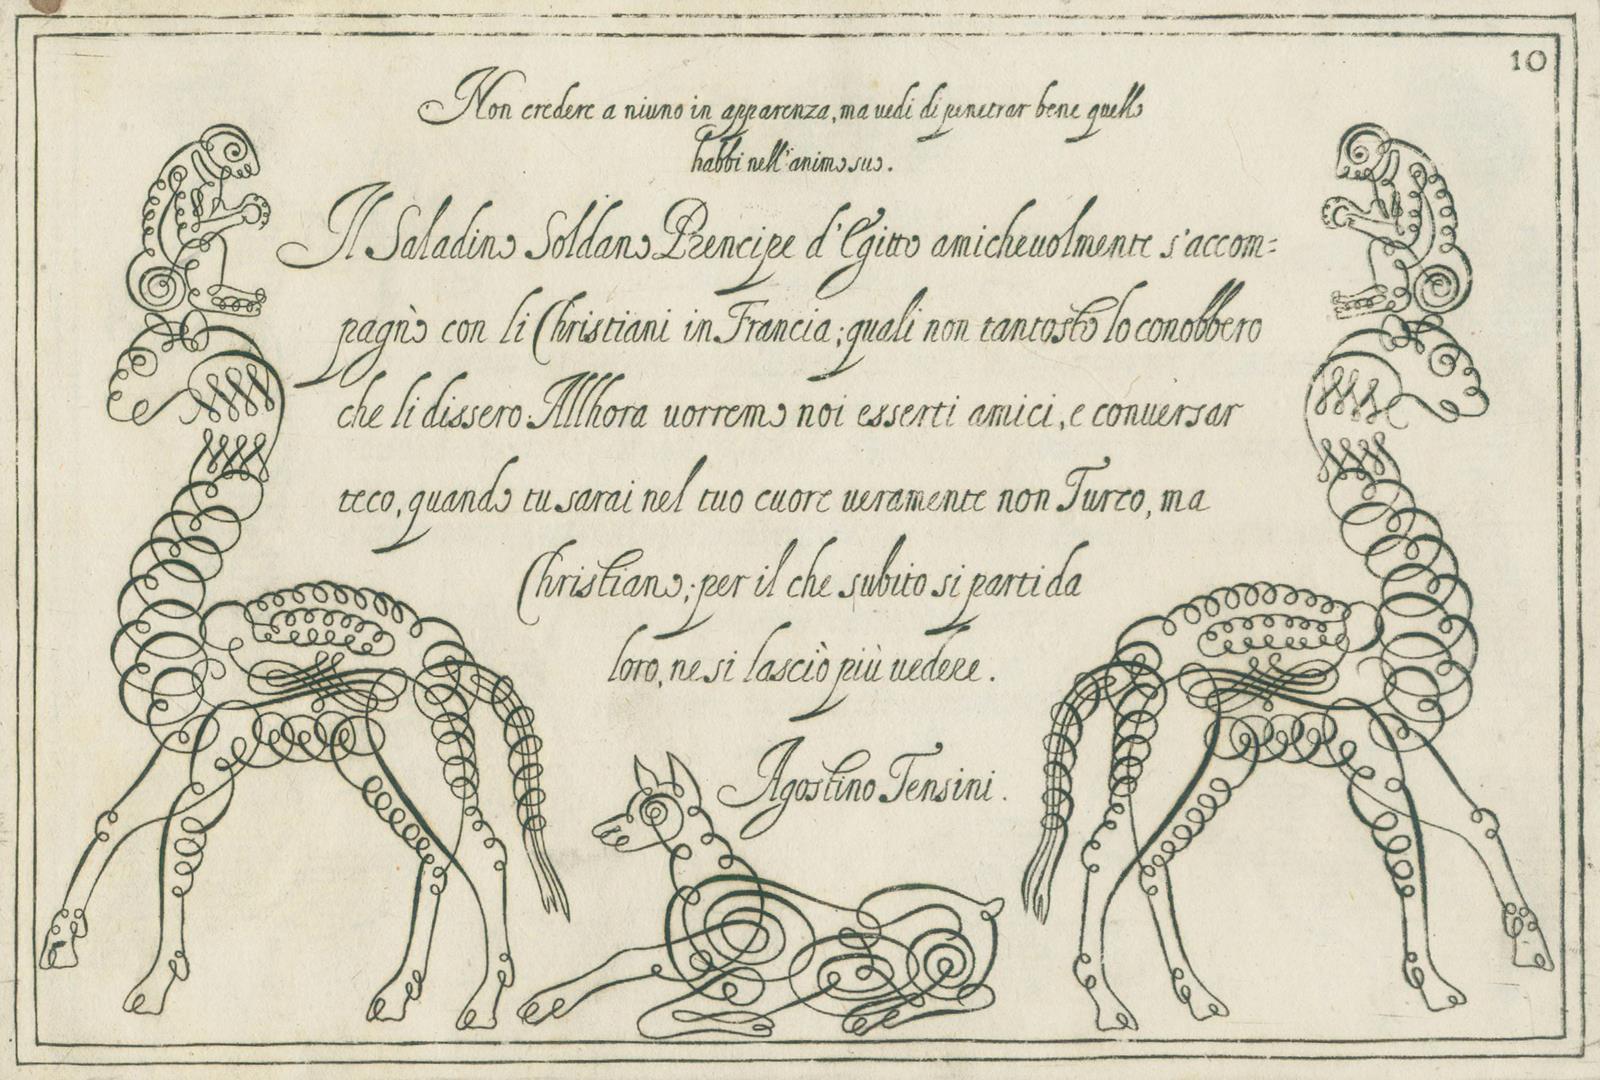 10
Non credere a niuno in apparenza, ma vedi di penetrar bene quello
habbi nell'animo suo.
Il Saladino Soldano Prencipe d'Egitto amicheuolmente s'accom=
pagnò con li Christiani in Francia; quali non tantosto lo conobbero
che li dissero: Allhora uorremo noi esserti amici, e conuersar
teco, quando tu sarai nel tuo cuore ueramente non Turco, ma
Christiano; per il che subito si parti da
loro, ne si lasciò più uedere.
Agostino Tensini.